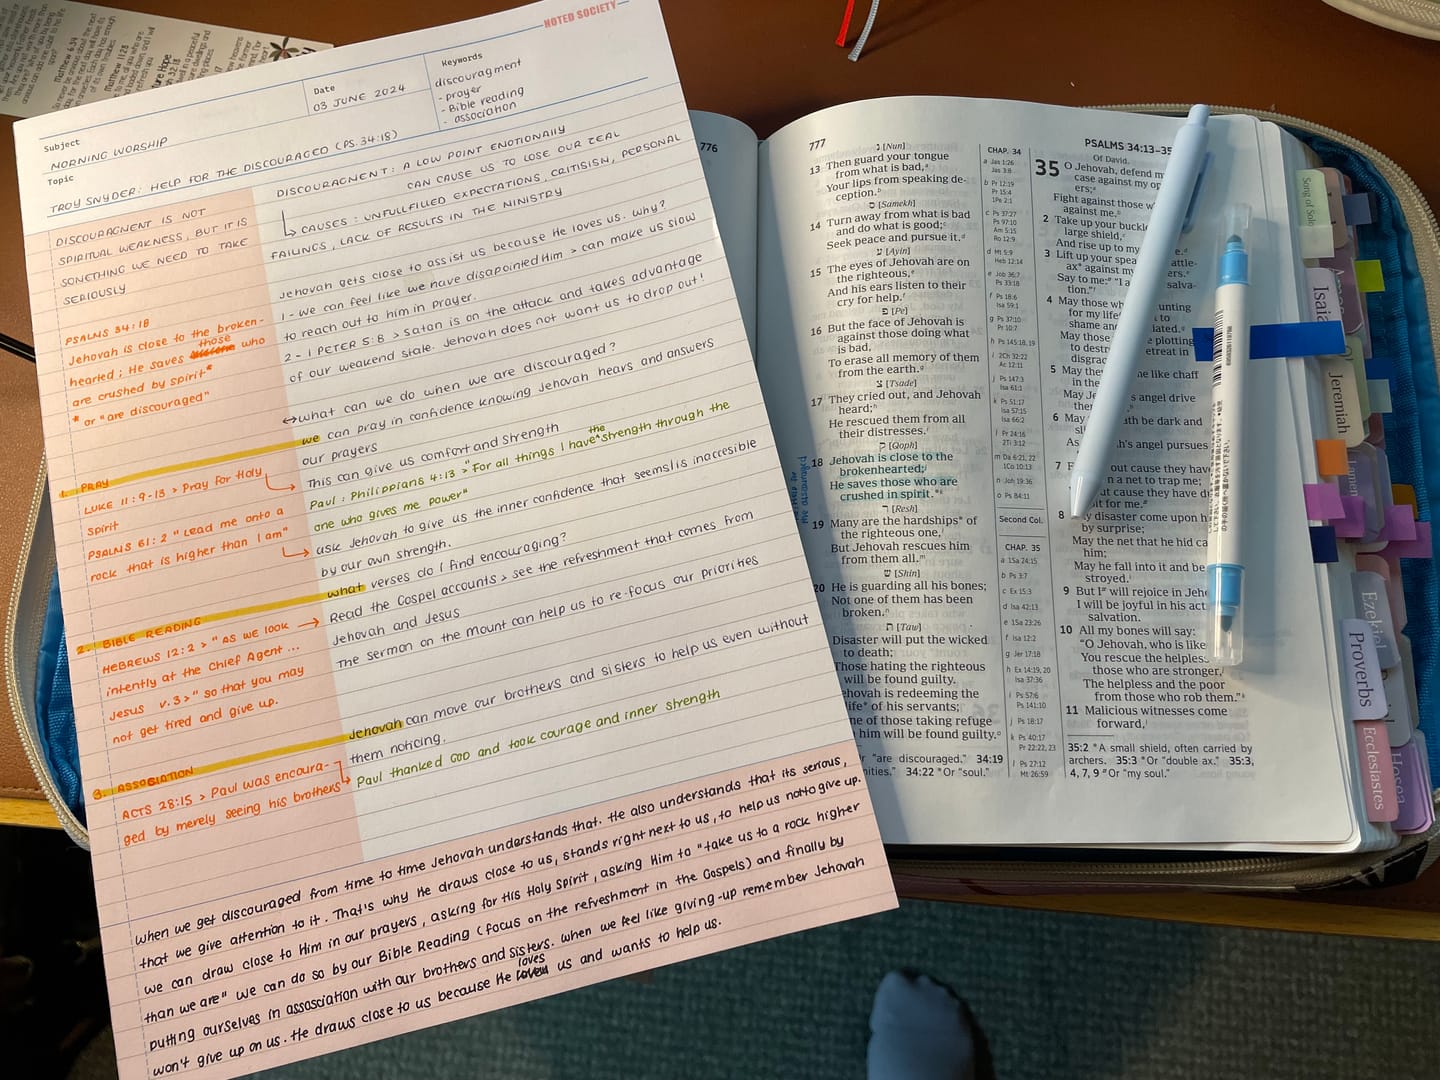 NOTED SOCIETY
Subject
MORNING WORSHIP
Date
03 JUNE 2024
Keywords
discouragment
- prayer
- Bible reading
- association
Topic
TROY SNYDER: HELP FOR THE DISCOURAGED (PS. 34:18)
DISCOURAGMENT IS NOT
SPIRITUAL WEAKNESS, BUT IT IS
SOMETHING WE NEED TO TAKE
SERIOUSLY
PSALMS 34:18
Jehovah is close to the broken-
hearted; He saves those who
are crushed by spirit*
* or "are discouraged"
1. PRAY
LUKE 11:9-13 > Pray for Holy
Spirit
PSALMS 61:2 "Lead me onto a
rock that is higher than I am"
2. BIBLE READING
HEBREWS 12:2 > "AS we look
intently at the Chief Agent ...
Jesus v.3 > "so that you may
not get tired and give up.
3. ASSOCIATION
ACTS 28:15 > Paul was encoura-
ged by merely seeing his brothers
DISCOURAGMENT: A LOW POINT EMOTIONALLY
CAN CAUSE US TO LOSE OUR ZEAL
CAUSES: UNFULLFILLED EXPECTATIONS, CRITISISM, PERSONAL
FAILINGS, LACK OF RESULTS IN THE MINISTRY
Jehovah gets close to assist us because He loves us. Why?
1 - We can feel like we have disapointed Him > can make us slow
to reach out to him in prayer.
2 - 1 PETER 5:8 > Satan is on the attack and takes advantage
of our weakend state. Jehovah does not want us to drop out!
what can we do when we are discouraged?
we can pray in confidence knowing Jehovah hears and answers
our prayers
This can give us comfort and strength
Paul: Philippians 4:13 > "For all things I have the strength through the
one who gives me power"
ask Jehovah to give us the inner confidence that seems/is inaccesible
by our own strength.
what verses do I find encouraging?
Read the Gospel accounts > see the refreshment that comes from
Jehovah and Jesus
The sermon on the mount can help us to re-focus our priorities
Jehovah can move our brothers and sisters to help us even without
them noticing.
Paul thanked GOD and took courage and inner strength
When we get discouraged from time to time Jehovah understands that. He also understands that its serious,
that we give attention to it. That's why He draws close to us, stands right next to us, to help us not to give up.
we can draw close to Him in our prayers, asking for His Holy Spirit, asking Him to "take us to a rock higher
than we are" we can do so by our Bible Reading (focus on the refreshment in the Gospels) and finally by
putting ourselves in assosciation with our brothers and sisters. when we feel like giving-up remember Jehovah
won't give up on us. He draws close to us because He loves us and wants to help us.
Matthew 6:34
Matthew 11:28
776
777
PSALMS 34:13–35
נ [Nun]
13 Then guard your tongue
from what is bad,
Your lips from speaking de-
ception.
ס [Samekh]
14 Turn away from what is bad
and do what is good;
Seek peace and pursue it.
ע [Ayin]
15 The eyes of Jehovah are on
the righteous,
And his ears listen to their
cry for help.
פ [Pe]
16 But the face of Jehovah is
against those doing what
is bad,
To erase all memory of them
from the earth.
צ [Tsade]
17 They cried out, and Jehovah
heard;
He rescued them from all
their distresses.
ק [Qoph]
18 Jehovah is close to the
brokenhearted;
He saves those who are
crushed in spirit.*
ר [Resh]
19 Many are the hardships* of
the righteous one,
But Jehovah rescues him
from them all.
ש [Shin]
20 He is guarding all his bones;
Not one of them has been
broken.
ת [Taw]
Disaster will put the wicked
to death;
Those hating the righteous
will be found guilty.
ehovah is redeeming the
life* of his servants;
ne of those taking refuge
him will be found guilty.
"are discouraged." 34:19
34:22 *Or "soul."
CHAP. 34
a Jas 1:26
Jas 3:8
b Pr 12:19
Pr 15:4
1Pe 2:1
c Ps 37:27
Ps 97:10
Am 5:15
Ro 12:9
d Mt 5:9
Heb 12:14
e Job 36:7
Ps 33:18
f Ps 18:6
Isa 59:1
g Ps 37:10
Pr 10:7
h Ps 145:18, 19
i 2Ch 32:22
Ac 12:11
j Ps 147:3
Isa 61:1
k Ps 51:17
Isa 57:15
Isa 66:2
l Pr 24:16
2Ti 3:12
m Da 6:21, 22
1Co 10:13
n Joh 19:36
o Ps 84:11
Second Col.
CHAP. 35
a 1Sa 24:15
b Ps 3:7
c Ex 15:3
d Isa 42:13
e 1Sa 23:26
f Isa 12:2
g Jer 17:18
h Ex 14:19, 20
Isa 37:36
i Ps 57:6
Ps 141:10
j Ps 18:17
k Ps 40:17
Pr 22:22, 23
l Ps 27:12
Mt 26:59
Of David.
35 O Jehovah, defend m
case against my op
ers;
Fight against those w
against me.
2 Take up your buckl
large shield,
And rise up to my
3 Lift up your spea
ax* against my
Say to me:* "I a salva-
tion."
4 May those wh unting
for my life
shame and
to destr e plotting
disgrac etreat in
5 May the e like chaff
in the
May Je s angel drive
them
6 May ath be dark and
As h's angel pursues
7 out cause they have
n a net to trap me;
ut cause they have d
it for me.
8 disaster come upon h
by surprise;
May the net that he hid ca
him;
May he fall into it and be
stroyed.
9 But I* will rejoice in Jeh
I will be joyful in his act
salvation.
10 All my bones will say:
"O Jehovah, who is like
You rescue the helpless
those who are stronger,
The helpless and the poor
from those who rob them."
11 Malicious witnesses come
forward,
35:2 *A small shield, often carried by
archers. 35:3 *Or "double ax." 35:3,
4, 7, 9 *Or "my soul."
Song of Solo
Isaia
Jeremiah
Lamen
Ezekiel
Proverbs
Ecclesiastes
Hosea